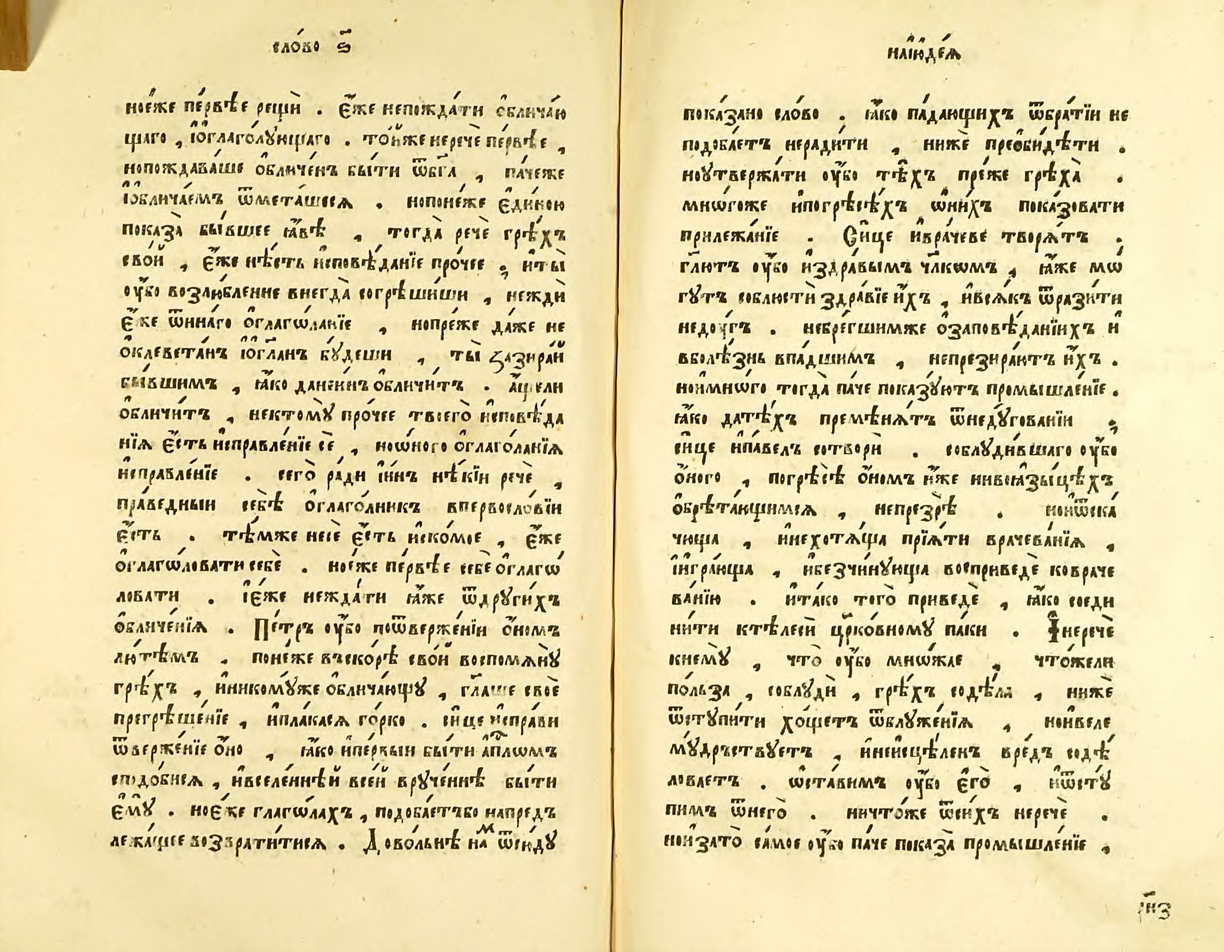 сло́во ѕ҃
ноє́же пе́рвѣе рещѝ . є҆́же непожда́ти ѡ҆блича́ю
щаго , і҆ѻ҆глаго́лующаго . то́йже неречѐ пе́рвѣе ,
нопождава́ше ѻ҆бличе́нъ бы́ти ѿбг҃а , па́чеже
і҆ѻ҆блича́емъ ѿмета́шесѧ . нопоне́же є҆ди́ною
показа̀ бы́вшее ꙗ҆́вѣ , тогда̀ речѐ грѣ́хъ
сво́й , є҆́же нѣ́сть и҆сповѣ́данїе про́чее , и҆ты̀
ѹ҆́бо возлю́бленне внегда̀ согрѣши́ши , неждѝ
є҆́же ѿи́наго ѻ҆глаго́ланїе , нопре́же да́же не
ѻ҆клевета́нъ і҆ѻ҆гл҃анъ бу́деши , ты̀ зазира́й
бы́вшимъ , ꙗ҆́ко да́неи́нъ ѻ҆бличи́тъ . а҆́щели
ѻ҆бличи́тъ , нектомꙋ̀ про́чее твоего̀ и҆сповѣ́да
нїѧ є҆́сть и҆справле́нїе сѐ , ноѻ҆́ного ѻ҆глаго́ланїѧ
и҆справле́нїе . сего̀ ра́ди і҆и́нъ нѣ́кїи речѐ ,
пра́ведныи себѣ̀ ѻ҆глаго́лникъ впервосло́вїи
є҆́сть . тѣ́мже несѐ є҆́сть и҆ско́мое , є҆́же
ѻ҆глаго́ловати себѐ . ноє́же пе́рвѣе себѐ ѻ҆глаго́
ловати . і҆є́же нежда́ти ꙗ҆́же ѿдрꙋги́хъ
ѻ҆бличе́нїѧ . Пе́тръ ѹ҆́бо поѿверже́нїи ѻ҆́номъ
лю́тѣмъ . поне́же въско́рѣ сво́й воспомѧнꙋ̀
грѣ́хъ , и҆никомꙋ́же ѻ҆блича́ющꙋ , гл҃аше своѐ
прегрѣше́нїе , и҆пла́касѧ го́рко . си́це и҆спра́ви
ѿверже́нїе ѻ҆́но , ꙗ҆́ко и҆пе́рвыи бы́ти а҆пⷭ҇ломъ
сподо́бисѧ , и҆вселе́ннѣй все́й врꙋче́ннѣ бы́ти
є҆мꙋ̀ . ноє́же глаго́лахъ , подоба́етъбо напре́дъ
лежа́щее возврати́тисѧ . Дово́льнѣ на́мъ ѿсю́дꙋ
наїюде́ѧ
пока́зано сло́во . ꙗ҆́ко па́дающихъ ѿбра́тїи не
подоба́етъ неради́ти , нижѐ преѡби́дѣти .
ноꙋтвержа́ти ѹ҆́бо тѣ́хъ пре́же грѣха̀ .
мно́гоже и҆погрѣсѣ́хъ ѡ҆ни́хъ показовати
прилежа́нїе . Си́це и҆врачевѐ творѧ́тъ .
гл҃ютъ ѹ҆́бо и҆здра́вымъ чл҃комъ , ꙗ҆́же мо́
гꙋтъ соблюстѝ здра́вїе и҆́хъ , и҆всѧ́къ ѿрази́ти
недꙋ́гъ . небре́гшимже ѻ҆за́повѣданїихъ и҆
вболѣ́знь впа́дшимъ , непрезира́ютъ и҆́хъ .
ноимно́го тогда̀ па́че показꙋ́ютъ промышле́нїе .
ꙗ҆́ко датѣ́хъ премѣнѧ́тъ ѿнедꙋгова́нїи ,
си́це и҆па́велъ сотворѝ . соблꙋди́вшаго ѹ҆́бо
ѻ҆́ного , погрѣ́сѣ ѻ҆́номъ и҆́же нивоꙗ҆зы́цѣхъ
ѻ҆брѣта́ющимсѧ , непрезрѣ̀ . ноиѿска
чюща , и҆нехотѧ́ща прїѧ́ти врачева́нїѧ ,
і҆игра́юща , и҆безчи́нꙋюща восприведѐ ковраче
ва́нїю . и҆та́ко того̀ приведѐ , ꙗ҆́ко соеди
ни́ти ктѣ́леси црко́вномꙋ па́ки . І҆неречѐ
кнемꙋ̀ , что̀ ѹ҆́бо мно́жле , что́жели
по́льза , соблꙋдѝ , грѣ́хъ содѣ́ла , нижѐ
ѿстꙋпи́ти хо́щетъ ѿблꙋже́нїѧ , ноивеле
мꙋ́дръствꙋетъ , и҆неисцѣ́ленъ вре́дъ содѣ́
ловаетъ . ѡ҆ста́вимъ ѹ҆́бо є҆го̀ , и҆ѿстꙋ́
пимъ ѿнего̀ . ничто́же ѿси́хъ неречѐ .
ноизато̀ са́мое ѹ҆́бо па́че показа̀ промышле́нїе ,